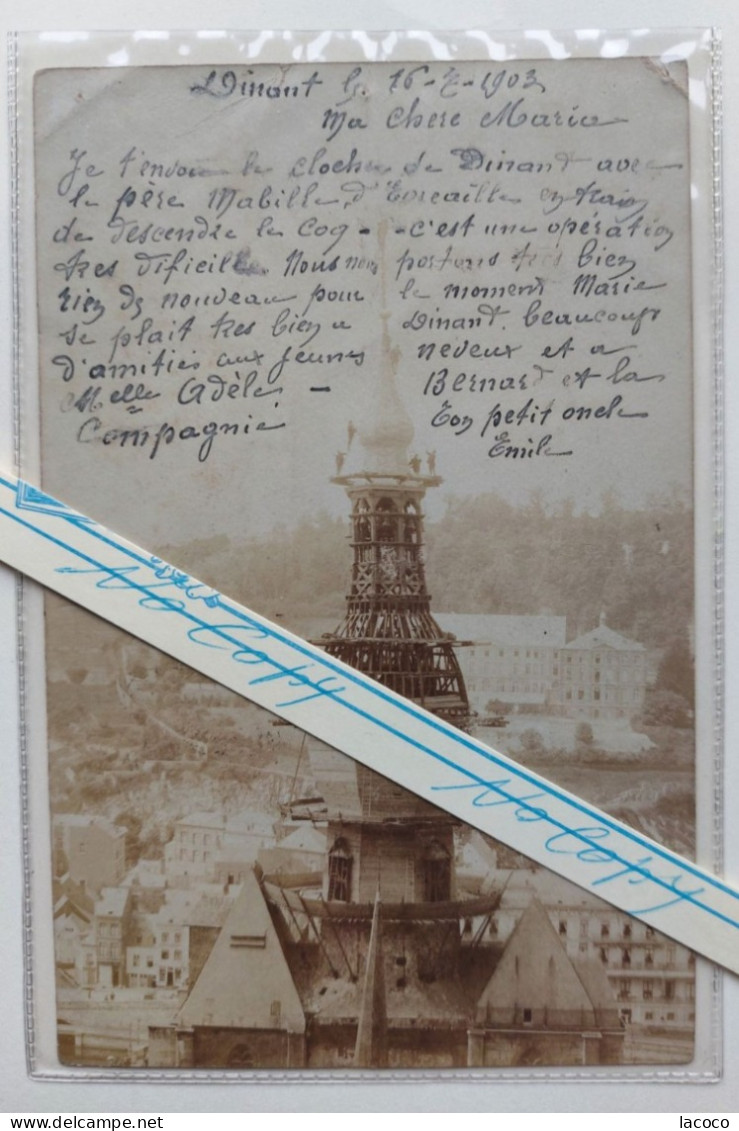 Dinant le 16-7-1903
Ma chere Maria
Je t'envoie le clocher de Dinant avec
le père Mabille d'Evrcaille en train
de descendre le coq - - c'est une opération
tres dificille. Nous nous portons très bien
rien de nouveau pour le moment Marie
se plait tres bien a Dinant. beaucoup
d'amitiés aux jeunes neveux et a
Melle Adèle - Bernard et la
Compagnie. Ton petit oncle
Emile
No Copy
No Copy
lacoco